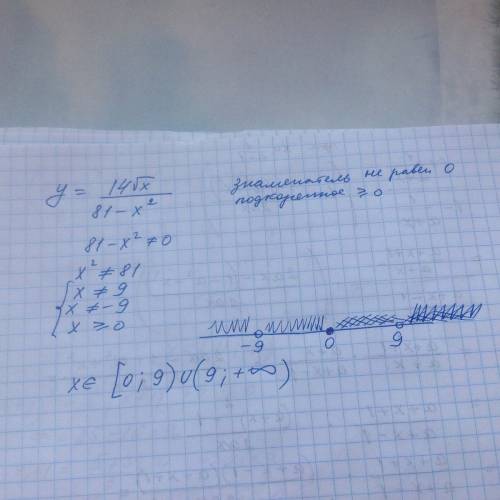 y = 14√x / (81 - x²)
знаменатель не равен 0
подкоренное ≥ 0
81 - x² ≠ 0
x² ≠ 81
{ x ≠ 9
x ≠ -9
x ≥ 0
-9 0 9
x ∈ [0; 9) ∪ (9; +∞)